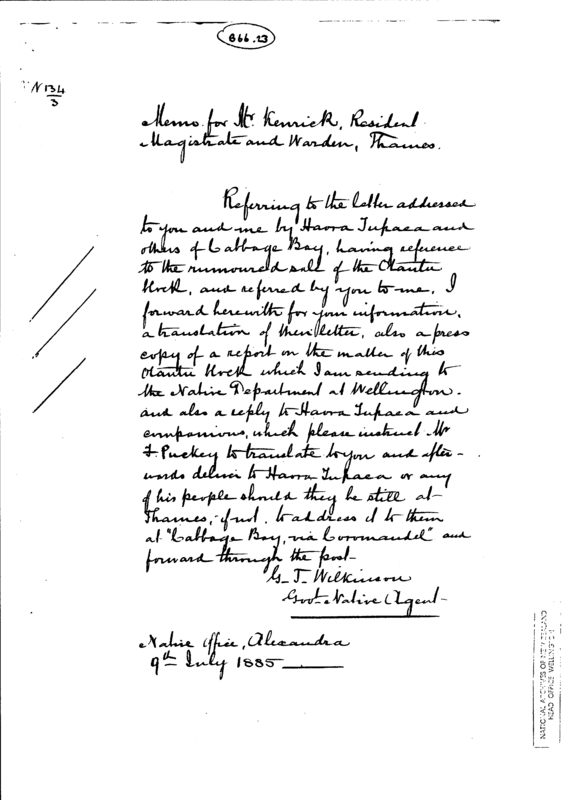 866.23
N 134
3
Memo. for Mr. Kenrick, Resident
Magistrate and Warden, Thames.
Referring to the letter addressed
to you and me by Haora Tupaea and
others of Cabbage Bay, having reference
to the rumoured sale of the Otautu
Block, and referred by you to me, I
forward herewith for your information,
a translation of their letter, also a press
copy of a report on the matter of this
Otautu Block which I am sending to
the Native Department at Wellington.
and also a reply to Haora Tupaea and
companions, which please instruct Mr
F. Puckey to translate to you and after-
wards deliver to Haora Tupaea or any
of his people should they be still at
Thames, if not, to address it to them
at "Cabbage Bay, via Coromandel" and
forward through the post-
G. T. Wilkinson
Govt Native Agent-
Native Office, Alexandra
9th July 1885
NATIONAL ARCHIVES OF NEW ZEALAND
HEAD OFFICE WELLINGTON